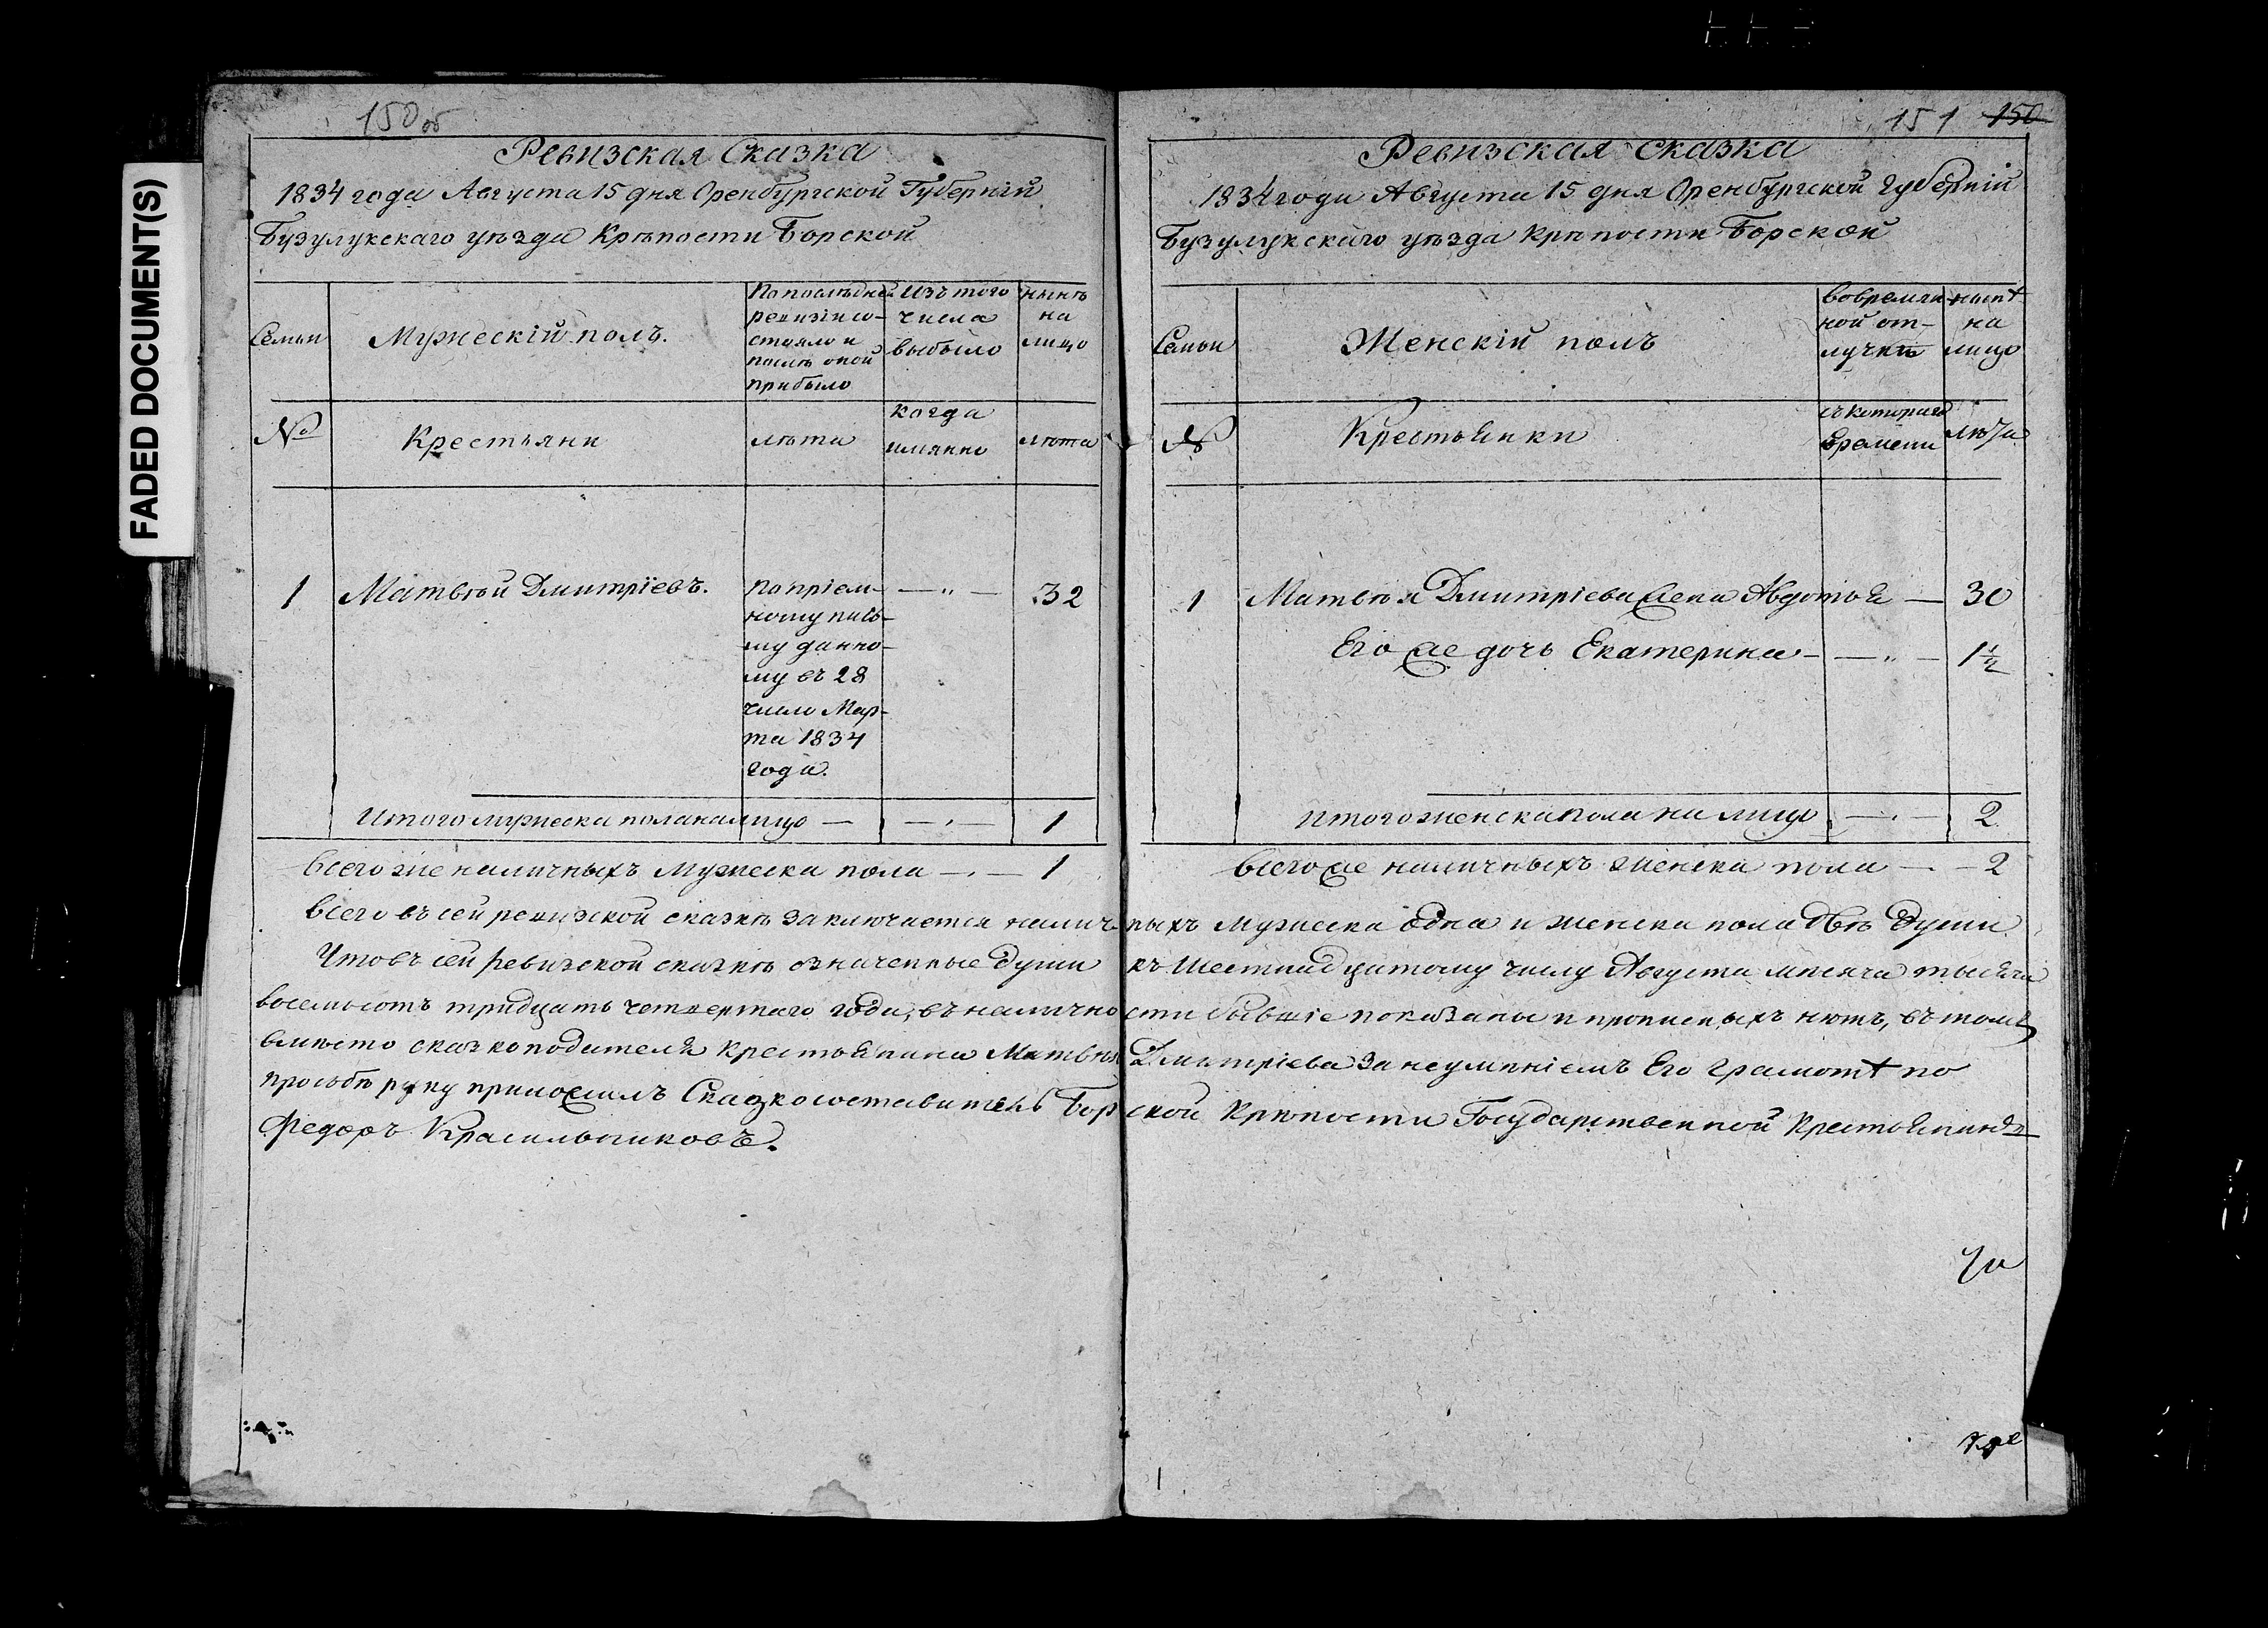 FADED DOCUMENT(S)
150 об
Ревизская Сказка
1834 года Августа 15 дня Оренбургской Губерніи
Бузулукскаго уѣзда Крѣпости Борской
Семьи
Мужескій полъ.
По последней
ревизіи со-
стояло и
послѣ оной
прибыло
Изъ того
числа
выбыло
нынѣ
на
лицо
№
Крестьяни
лѣта
когда
имянно
лѣта
1 Матвѣй Дмитріевъ. — " — 32
По пріем-
ному пись-
му данно-
му въ 28
число Мар-
та 1834
года.
Итого мужеска пола на лицо — — . — 1
Всего же наличныхъ мужеска пола — . — 1
151 150
Ревизская Сказка
1834 года Августа 15 дня Оренбургской Губерніи
Бузулукскаго уѣзда Крѣпости Борской
Семьи
Женскій полъ
во времян
ной от-
лучкѣ
нынѣ
на
лицо
№
Крестьянки
съ котораго
времени
лѣта
1 Матвѣя Дмитріева жена Авдотья — 30
Его же дочь Екатерина — — " — 1½
Итого женска пола на лицо — . — 2
Всего же наличныхъ женска пола — . — 2
Всего въ сей ревизской сказкѣ заключается наличныхъ мужеска одна и женска пола двѣ души
Что въ сей ревизской сказкѣ означенные души къ шестнадцатому числу Августа мѣсяча тысяча
восемьсотъ тридцать четвертаго года, въ наличности бывшіе показаны и прописныхъ нѣтъ, въ томъ
вмѣсто сказкоподателя крестьянина Матвѣя Дмитріева за неумѣніемъ Его грамотѣ по
прозьбѣ руку приложилъ Сказкосоставитель Борской Крѣпости Государственной Крестьянинъ
Федоръ Красильниковъ.